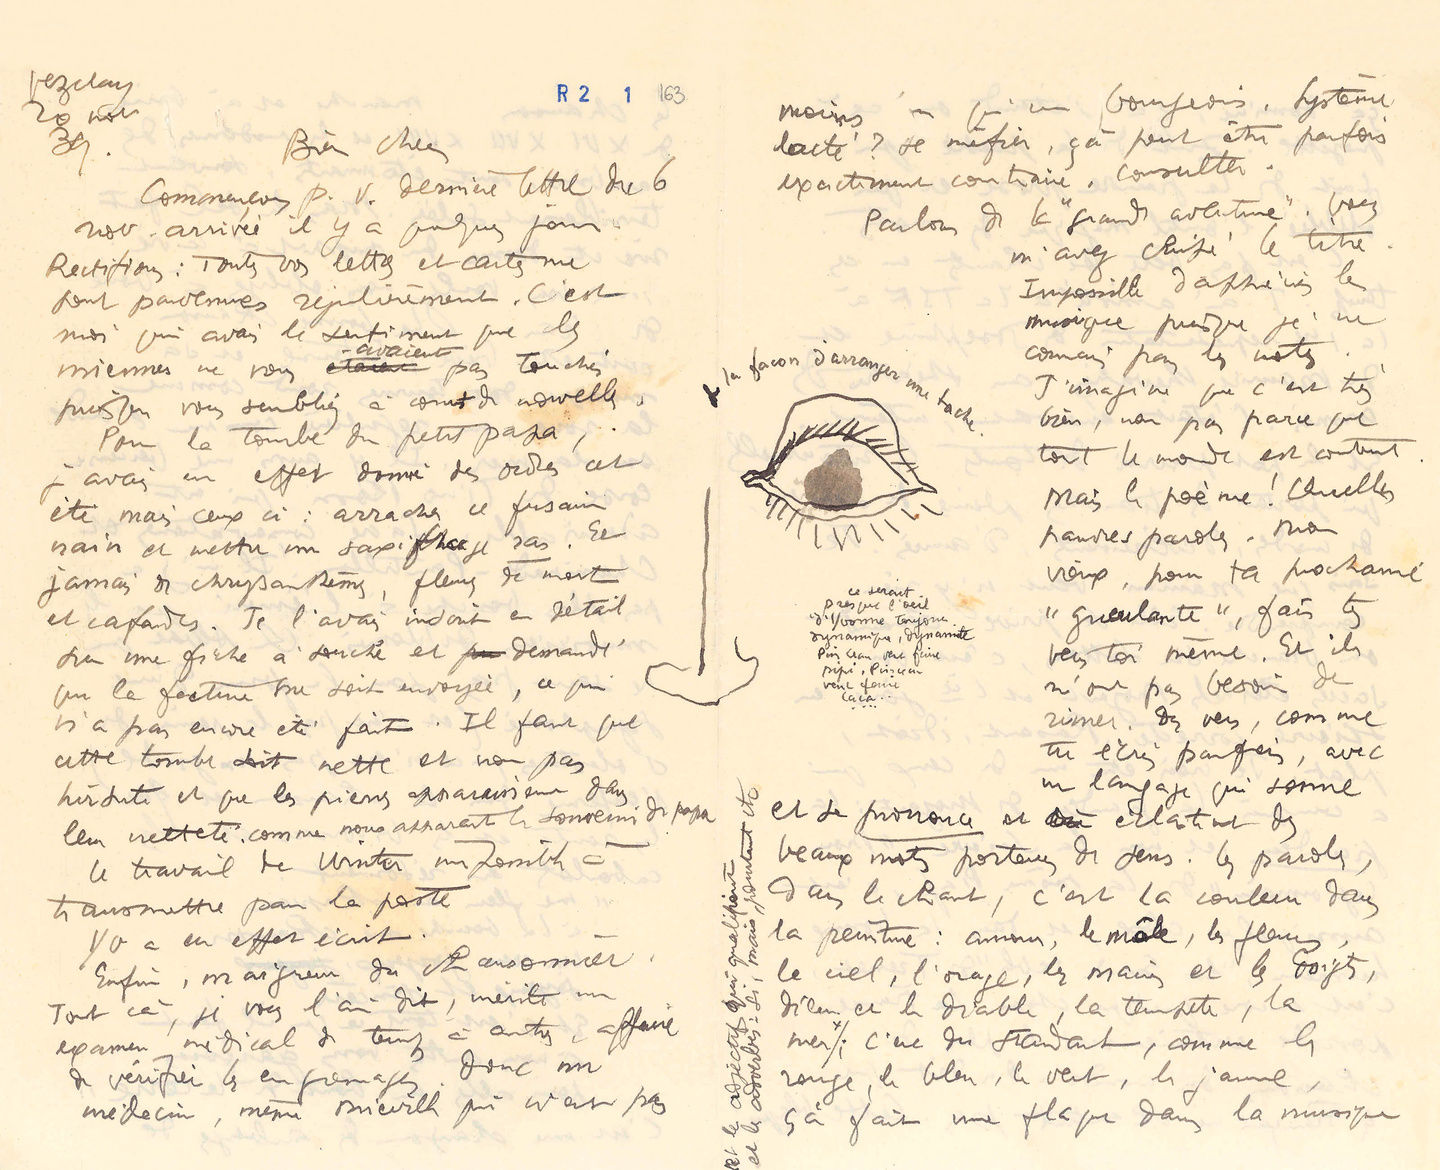 Vezelay
20 nov
39.
R2 1 163
Bien chers
Commençons p. v. dernière lettre du 6
nov. arrivée il y a quelques jours.
Rectifions : Toutes vos lettres et cartes me
sont parvenues régulièrement. C'est
moi qui avais le sentiment que les
miennes ne vous avaient pas touchés
puisque vous sembliez à court de nouvelles.
Pour la tombe du petit papa,
j'avais en effet donné des ordres cet
été mais ceux ci : arracher ce fusain
nain et mettre un saxifrage ras. Et
jamais de chrysanthèmes, fleurs de mort
et cafardes. Je l'avais inscrit en détail
sur une fiche à souche et demandé
que la facture me soit envoyée, ce qui
n'a pas encore été fait. Il faut que
cette tombe soit nette et non pas
hirsute et que les pierres apparaissent dans
leur netteté. comme nous apparait le souvenir de papa
le travail de Winter un Zenith à
transmettre par la poste
Yv a en effet écrit.
Enfin, maigreur du chansonnier.
Tout ça, je vous l'ai dit, mérite un
examen médical de temps à autres, affaire
de vérifier les engrenages. Donc un
médecin, même Mieville qui n'est pas
moins qu'un bourgeois. Système
lacté? se méfier, çà peut être parfois
exactement contraire. Consulter.
Parlons de la "grande aventure". Vous
m'avez chipé le titre.
Impossible d'apprécier la
musique puisque je ne
connais pas les notes.
J'imagine que c'est très
bien, non pas parce que
tout le monde est content.
Mais le poème! Quelles
pauvres paroles. Mon
vieux, pour ta prochaine
"gueulante", fais tes
vers toi même. Et ils
n'ont pas besoin de
rimer. Des vers, comme
tu écris parfois, avec
un langage qui sonne
et se prononce et éclatent des
beaux mots porteurs de sens. les paroles,
dans le chant, c'est la couleur dans
la peinture : amour, le môle, les fleurs,
le ciel, l'orage, les mains et les doigts,
dieu et le diable, la tempête, la
mer; c'est du standart, comme le
rouge, le bleu, le vert, le jaune,
çà fait une flaque dans la musique
& la façon d'arranger une tache.
ce serait
presque l'oeil
d'Yvonne toujours
dynamique, dynamite
Pinceau veut faire
pipi, Pinceau
veut faire
caca...
et les adjectifs qui qualifient
et les adverbes : si, mais, pourtant etc